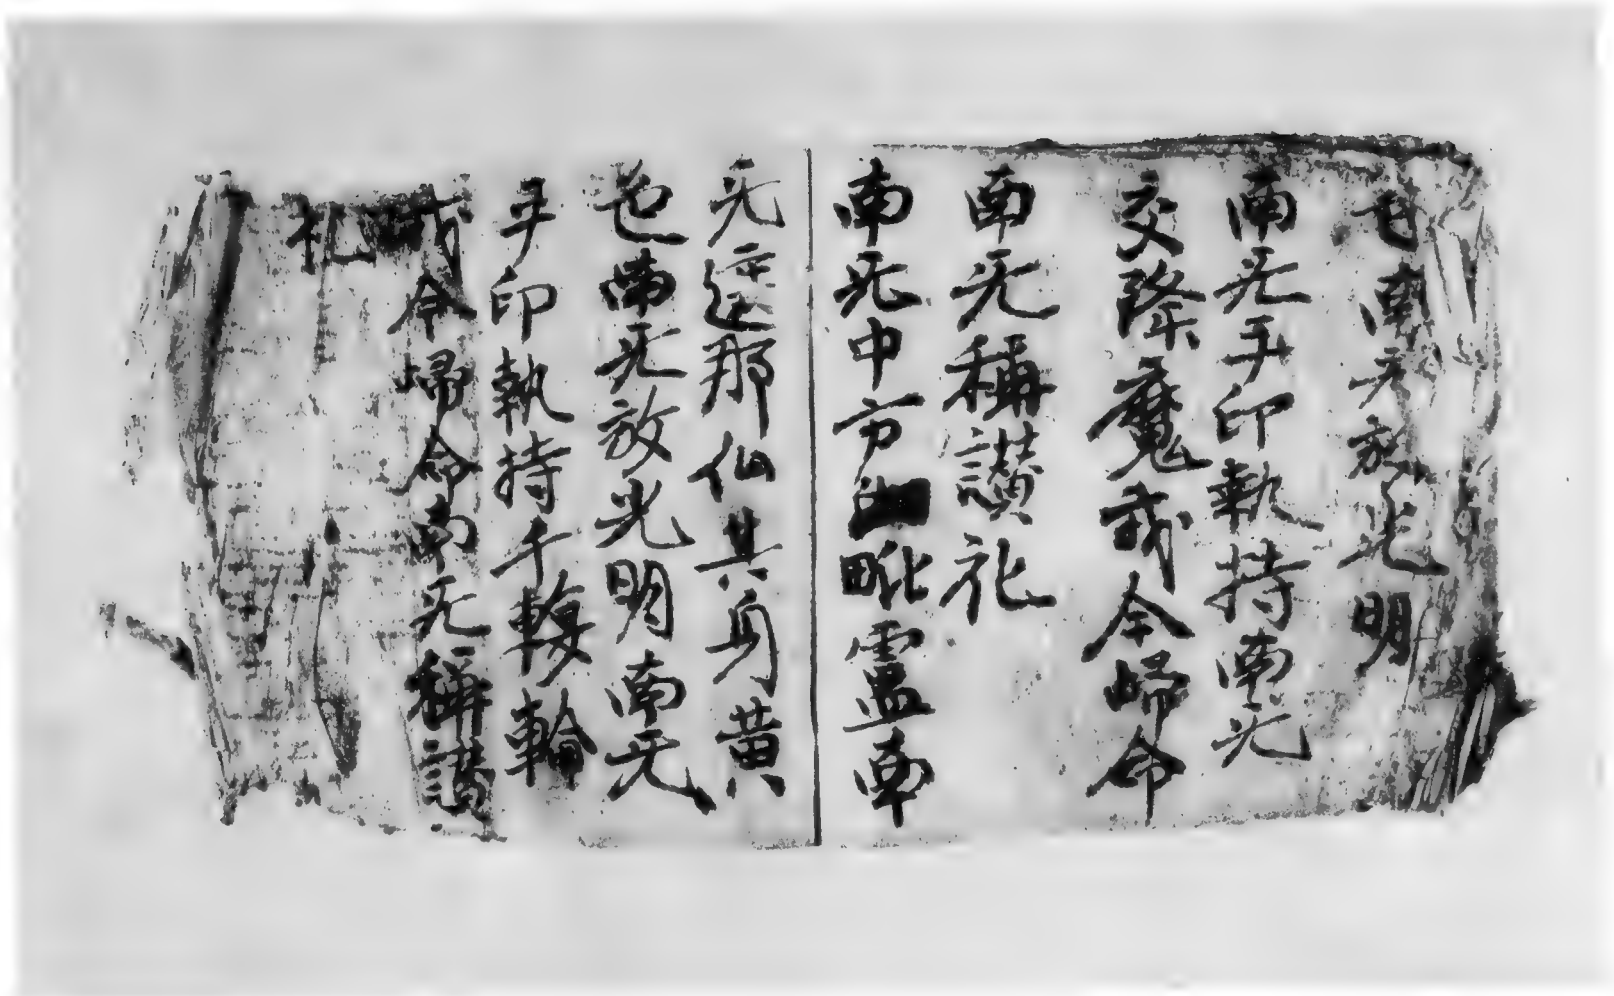 色南无放光明
南无手印執持南无
交降魔我今歸命
南无稱讃礼
南无中方毗盧南
无遮那仙其身黄
色南无放光明南无
手印執持千輻輪
我今歸命南无稱讃
礼